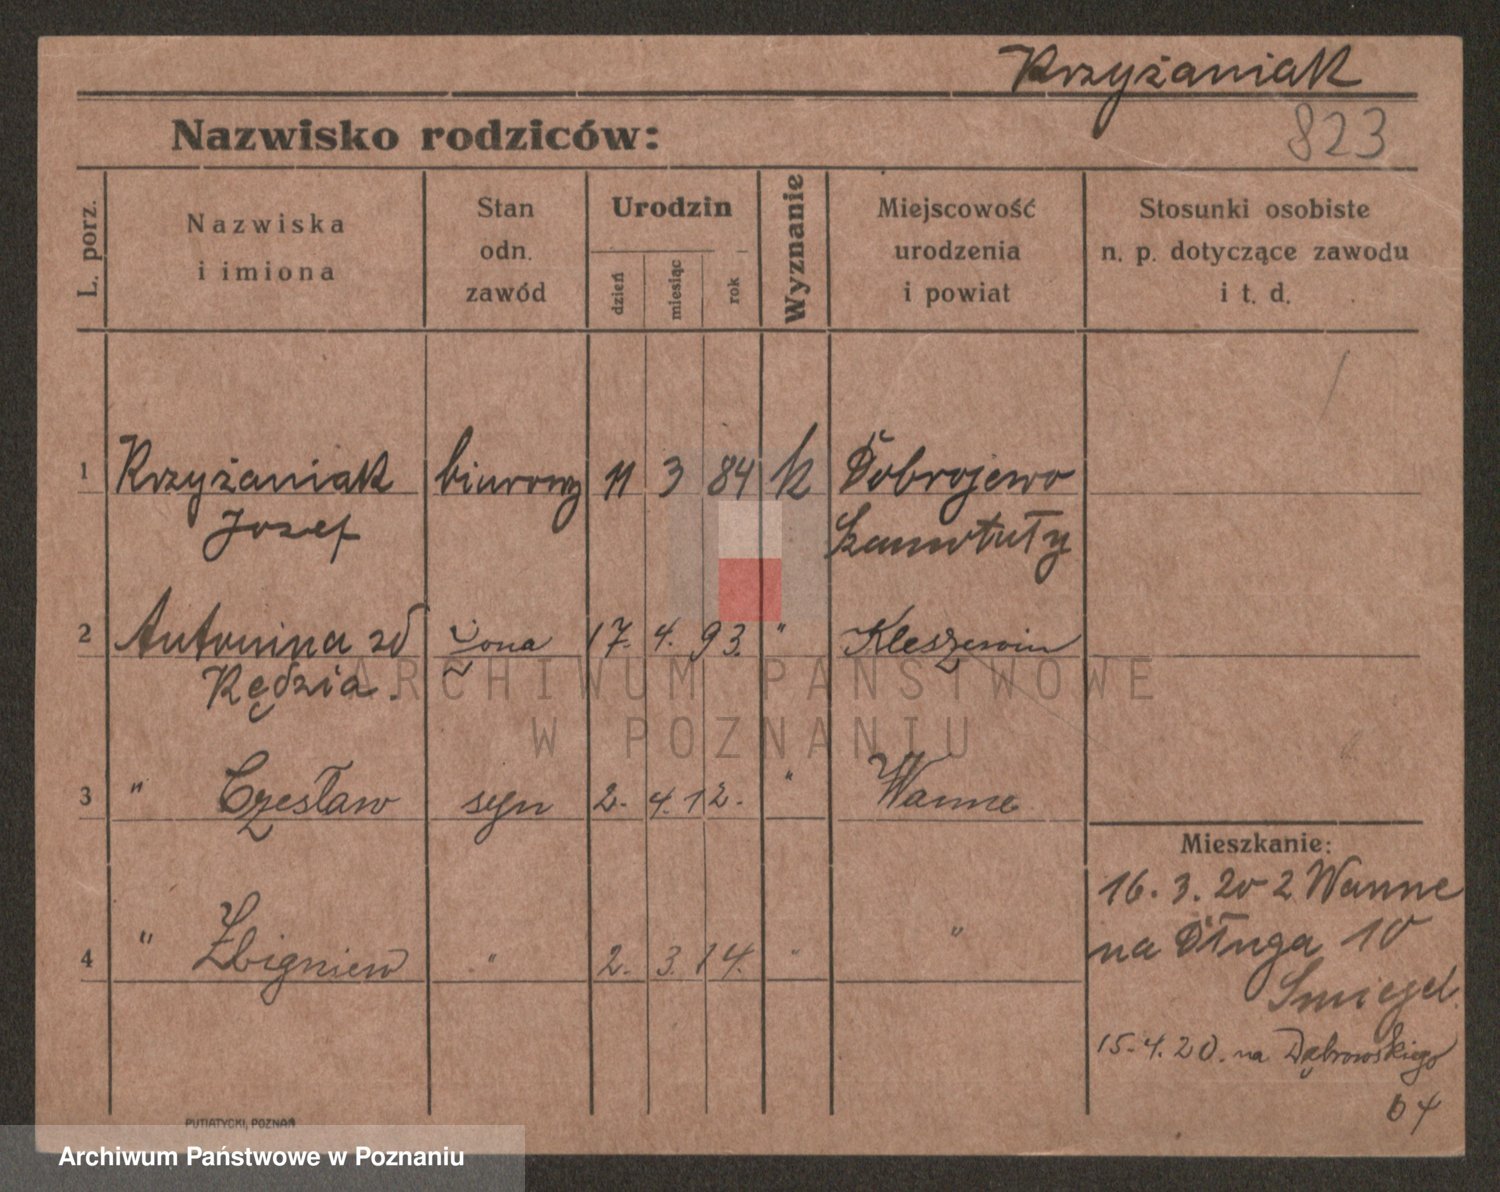 Krzyżaniak
823
Nazwisko rodziców:
L. porz.
Nazwiska
i imiona
Stan
odn.
zawód
Urodzin
dzień
miesiąc
rok
Wyznanie
Miejscowość
urodzenia
i powiat
Stosunki osobiste
n. p. dotyczące zawodu
i t. d.
1 Krzyżaniak biurowy 11 3 84 k Dobrojewo
Józef Szamotuły
2 Antonina zd żona 17. 4. 93. " Kleszewin
Kędzia.
3 " Czesław syn 2. 4. 12. " Wanne
4 " Zbigniew " 2. 3. 14. " "
Mieszkanie:
16. 3. 20 z Wanne
na Długa 10
Smiegel.
15. 4. 20. na Dąbrowskiego
64
PUTIATYCKI, POZNAŃ
ARCHIWUM PAŃSTWOWE
W POZNANIU
Archiwum Państwowe w Poznaniu